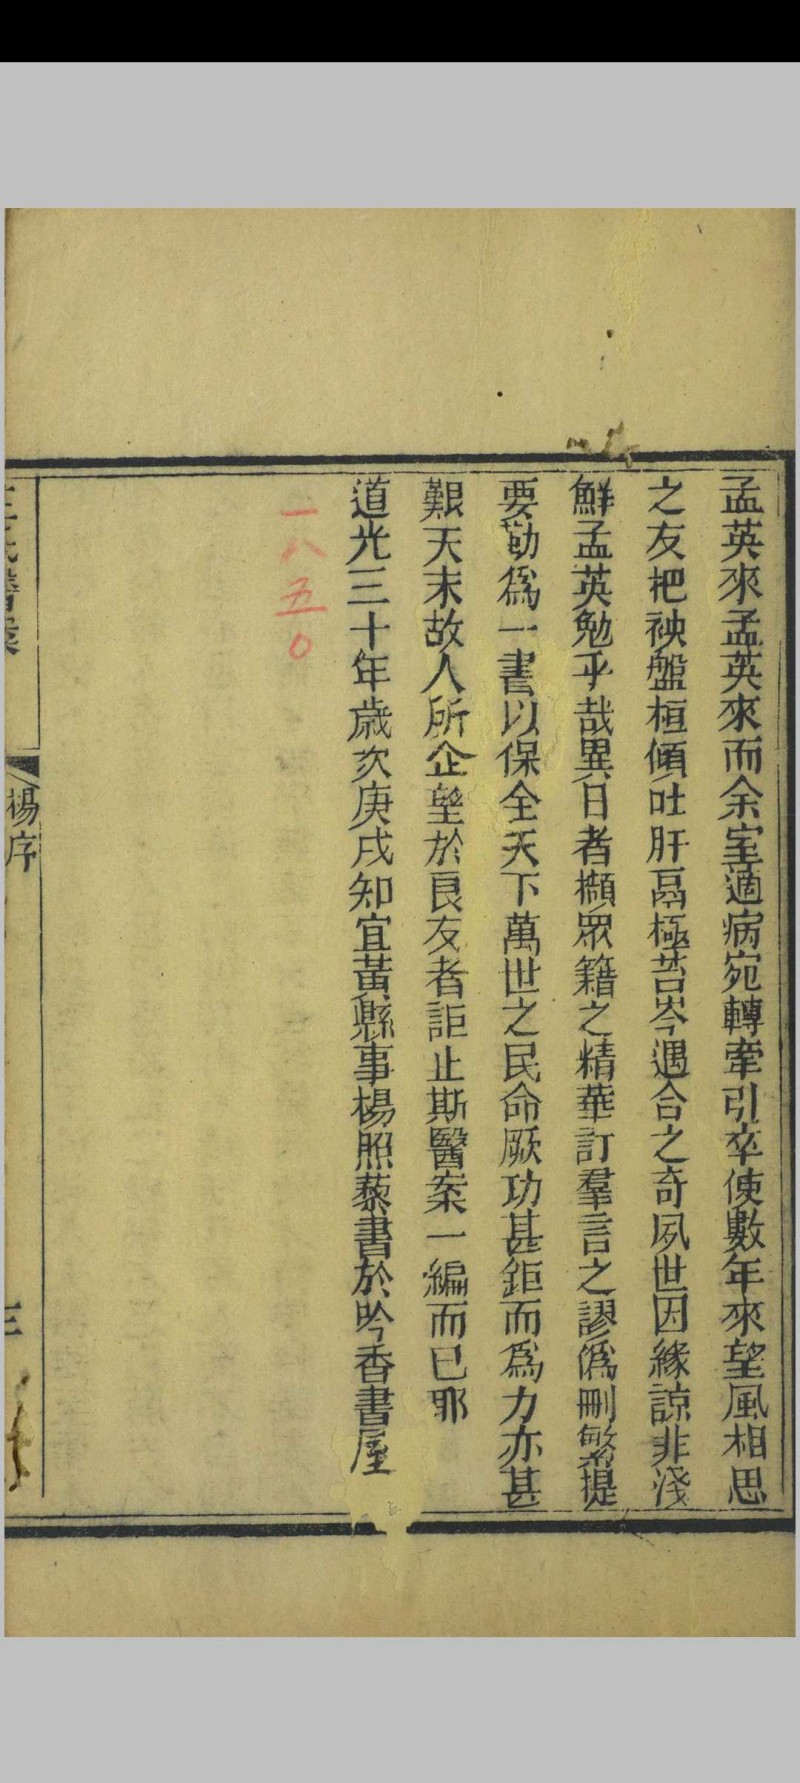 孟英來孟英來而余室適病宛轉牽引卒使數年來望風相思
之友把袂盤桓傾吐肝鬲極苔岑遇合之奇夙世因緣諒非淺
鮮孟英勉乎哉異日者擷眾籍之精華訂羣言之謬僞刪繁提
要勒爲一書以保全天下萬世之民命厥功甚鉅而爲力亦甚
艱天末故人所企望於良友者詎止斯醫案一編而已耶
道光三十年歲次庚戌知宜黃縣事楊照藜書於吟香書屋
一八五〇
王氏醫案
楊序
三